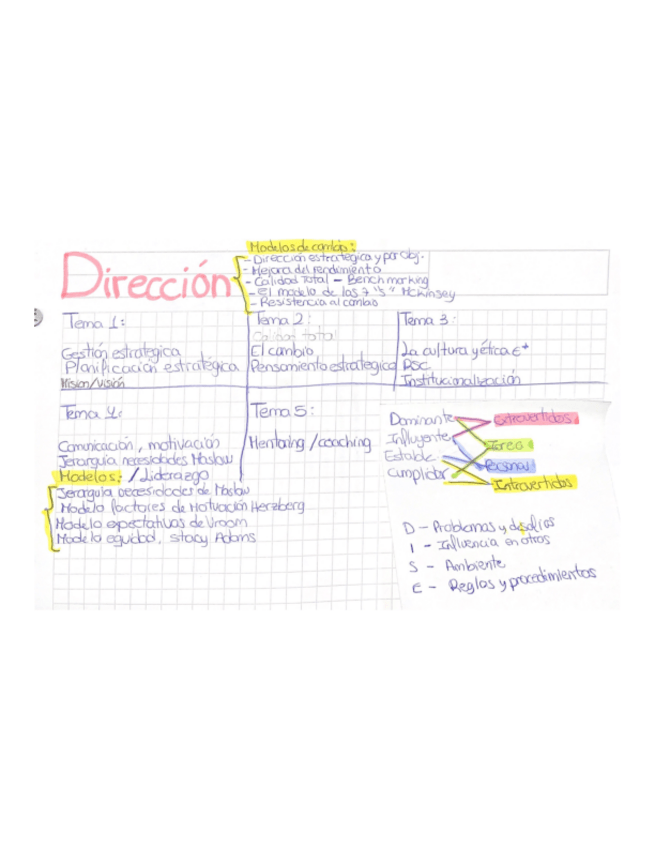 Modelos de cambio:
- Dirección estrategica y por obj.
- Mejora del rendimiento
- Calidad Total - Benchmarking
- El modelo de las 7 "S" McKinsey
- Resistencia al cambio
Dirección
Tema 1:
Gestión estrategica
Planificación estratégica
Misión/visión
Tema 2:
Calidad total
El cambio
Pensamiento estrategico
Tema 3:
La cultura y ética
RSC
Institucionalización
Tema 4:
Comunicación, motivación
Jerarquía necesidades Maslow
Modelos: /Liderazgo
Jerarquía necesidades de Maslow
Modelo factores de Motivación Herzberg
Modelo expectativas de Vroom
Modelo equidad, stacy Adams
Tema 5:
Mentoring /coaching
Dominante
Influyente
Estable
Cumplidor
extrovertidos
Tarea
Personas
Introvertidos
D - Problemas y desafíos
I - Influencia en otros
S - Ambiente
C - Reglas y procedimientos